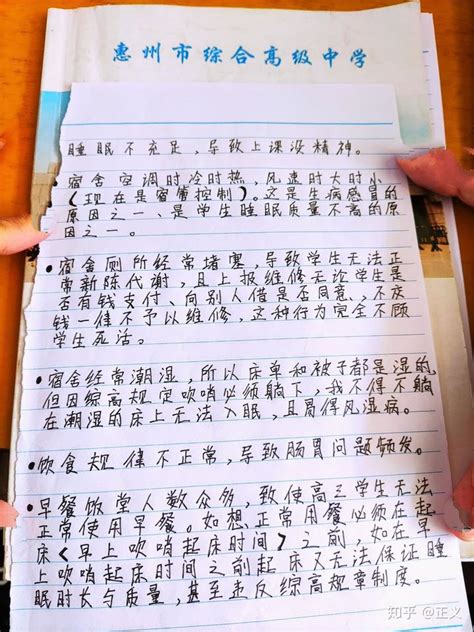 惠州市综合高级中学
睡眠不充足，导致上课没精神。
宿舍空调时冷时热，风速时大时小
（现在是宿管控制）。这是生病感冒的
原因之一、是学生睡眠质量不高的原
因之一。
•宿舍厕所经常堵塞，导致学生无法正
常新陈代谢，且上报维修无论学生是
否有钱支付、向别人借是否同意、不交
钱一律不予以维修，这种行为完全不顾
学生死活。
•宿舍经常潮湿，所以床单和被子都是湿的，
但因综高规定吹哨必须躺下，我不得不躺
在潮湿的床上无法入眠，且易得风湿病。
•饮食规律不正常，导致肠胃问题频发。
•早餐饭堂人数众多，致使高三学生无法
正常使用早餐。如想正常用餐必须在起
床<早上吹哨起床时间>之前，如在早
上吹哨起床时间之前起床又无法保证睡
眠时长与质量，甚至违反综高规章制度。
知乎 @正义